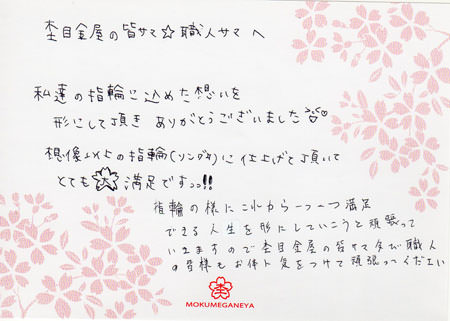 杢目金屋の皆サマ☆職人サマへ
私達の指輪に込めた想いを
形にして頂き ありがとうございました
想像以上の指輪(リング)に仕上げて頂いて
とても大満足ですっっ!!
指輪の様にこれから一つ一つ満足
できる人生を形にしていこうと頑張って
いきますので杢目金屋の皆サマ及び職人
の皆様もお体に気をつけて頑張ってください
MOKUMEGANEYA